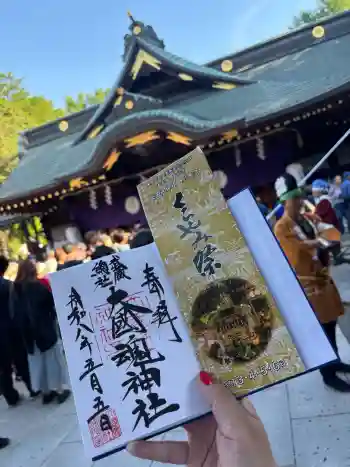 くらやみ祭
奉拝
武蔵
總社
大國魂神社
令和八年五月五日